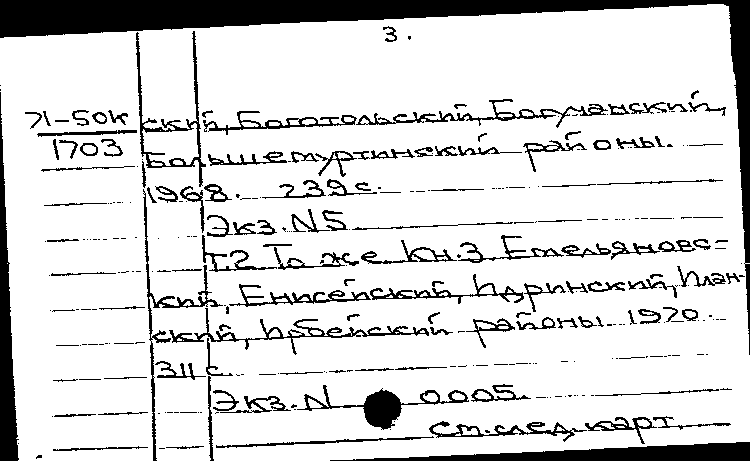 3.
71-50к ский, Боготольский, Богучанский,
1703 Большемуртинский районы.
1968. 239 с.
Экз. N5
Т.2 То же Кн.3 Емельяновс=
кий, Енисейский, Идринский, Илан-
ский, Ирбейский районы 1970.
311 с.
Экз. N 0005.
см. след. карт.